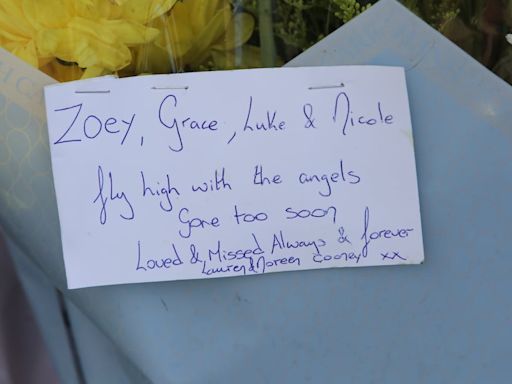 Zoey, Grace, Luke & Nicole
fly high with the angels
Gone too soon
Loved & Missed Always & forever
Lauren & Noreen Cooney xx